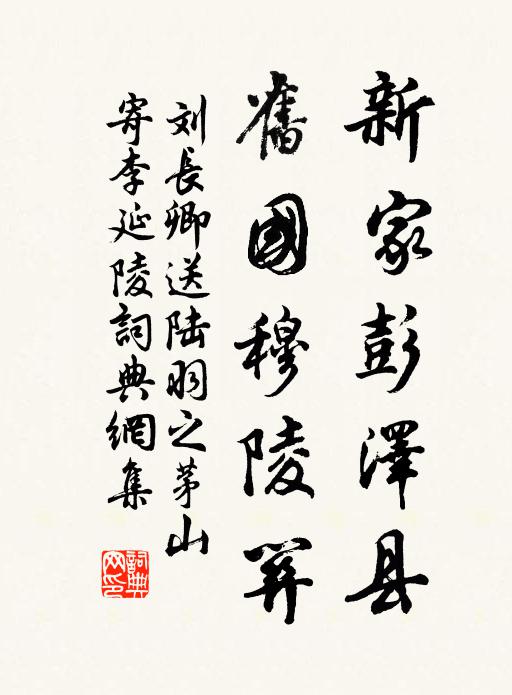 新家彭澤县
舊國穆陵關
刘長卿送陆羽之茅山
寄李延陵詞典網集
詞典网印